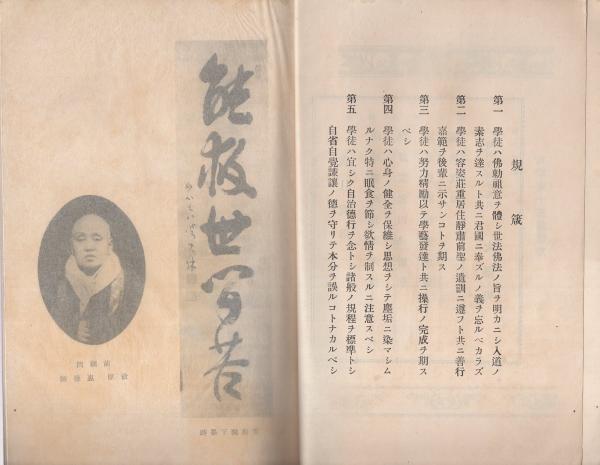 規箴
第一 學徒ハ佛勅祖意ヲ體シ世法佛法ノ旨ヲ明カニシ入道ノ
素志ヲ達スルト共ニ君國ニ奉ズルノ義ヲ忘ルベカラズ
第二 學徒ハ容姿莊重居住靜肅前聖ノ遺訓ニ遵フト共ニ善行
嘉範ヲ後輩ニ示サンコトヲ期ス
第三 學徒ハ努力精勵以テ學藝發達ト共ニ操行ノ完成ヲ期ス
ベシ
第四 學徒ハ心身ノ健全ヲ保維シ思想ヲシテ塵垢ニ染マシム
ルナク特ニ眠食ヲ節シ欲情ヲ制スルニ注意スベシ
第五 學徒ハ宜シク自治德行ヲ念トシ諸般ノ規程ヲ標準トシ
自省自覺謙讓ノ德ヲ守リテ本分ヲ誤ルコトナカルベシ
能救世間苦